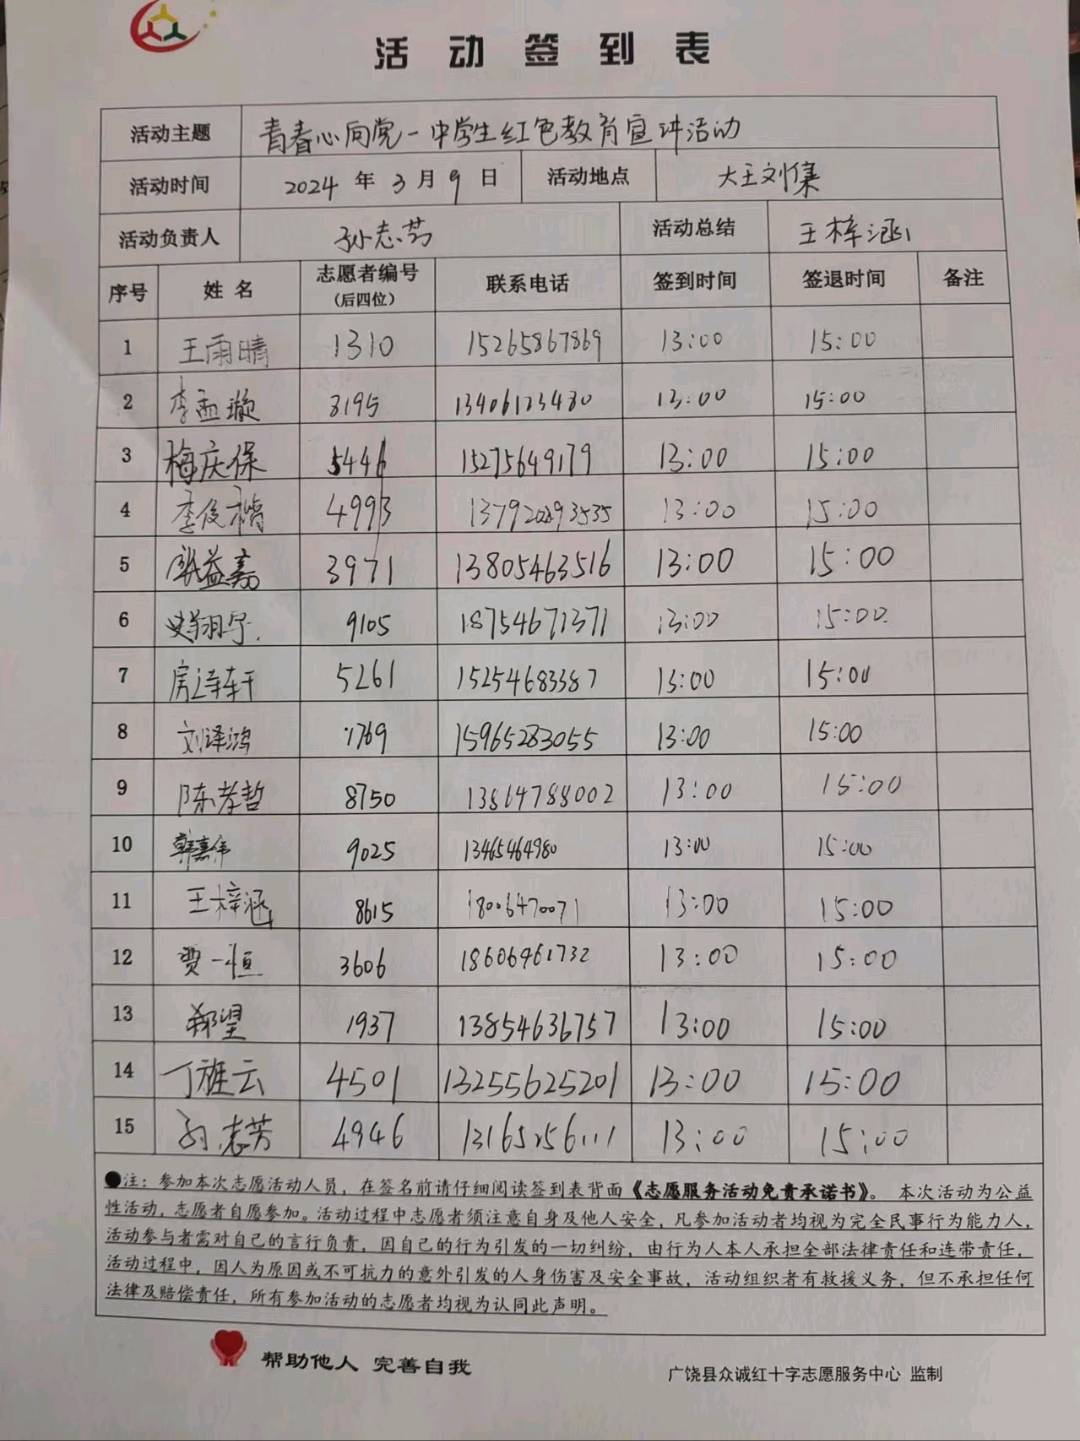 活动签到表
活动主题 青春心向党一中学生红色教育宣讲活动
活动时间 2024 年 3 月 9 日 活动地点 大王刘集
活动负责人 孙志芳 活动总结 王梓涵
序号 姓名 志愿者编号 联系电话 签到时间 签退时间 备注
(后四位)
1 王雨晴 1310 15265867869 13:00 15:00
2 李孟璇 3195 13406123480 13:00 15:00
3 梅庆保 5446 15275649179 13:00 15:00
4 李俊楷 4993 13:00 15:00
5 张益嘉 3971 13805463516 13:00 15:00
6 9105 18754671371 13:00 15:00
7 5261 15254683387 13:00 15:00
8 刘泽鸿 1769 15965283055 13:00 15:00
9 陈孝哲 8750 13864788002 13:00 15:00
10 韩嘉伟 9025 13465464980 13:00 15:00
11 王梓涵 8615 18006470071 13:00 15:00
12 贾一恒 3606 18606461732 13:00 15:00
13 郝望 1937 13854636757 13:00 15:00
14 丁雅云 4501 13255625201 13:00 15:00
15 孙志芳 4946 13165256111 13:00 15:00
●注：参加本次志愿活动人员，在签名前请仔细阅读签到表背面《志愿服务活动免责承诺书》。 本次活动为公益
性活动，志愿者自愿参加。活动过程中志愿者须注意自身及他人安全，凡参加活动者均视为完全民事行为能力人，
活动参与者需对自己的言行负责，因自己的行为引发的一切纠纷，由行为人本人承担全部法律责任和连带责任，
活动过程中，因人为原因或不可抗力的意外引发的人身伤害及安全事故，活动组织者有救援义务，但不承担任何
法律及赔偿责任，所有参加活动的志愿者均视为认同此声明。
帮助他人 完善自我
广饶县众诚红十字志愿服务中心 监制